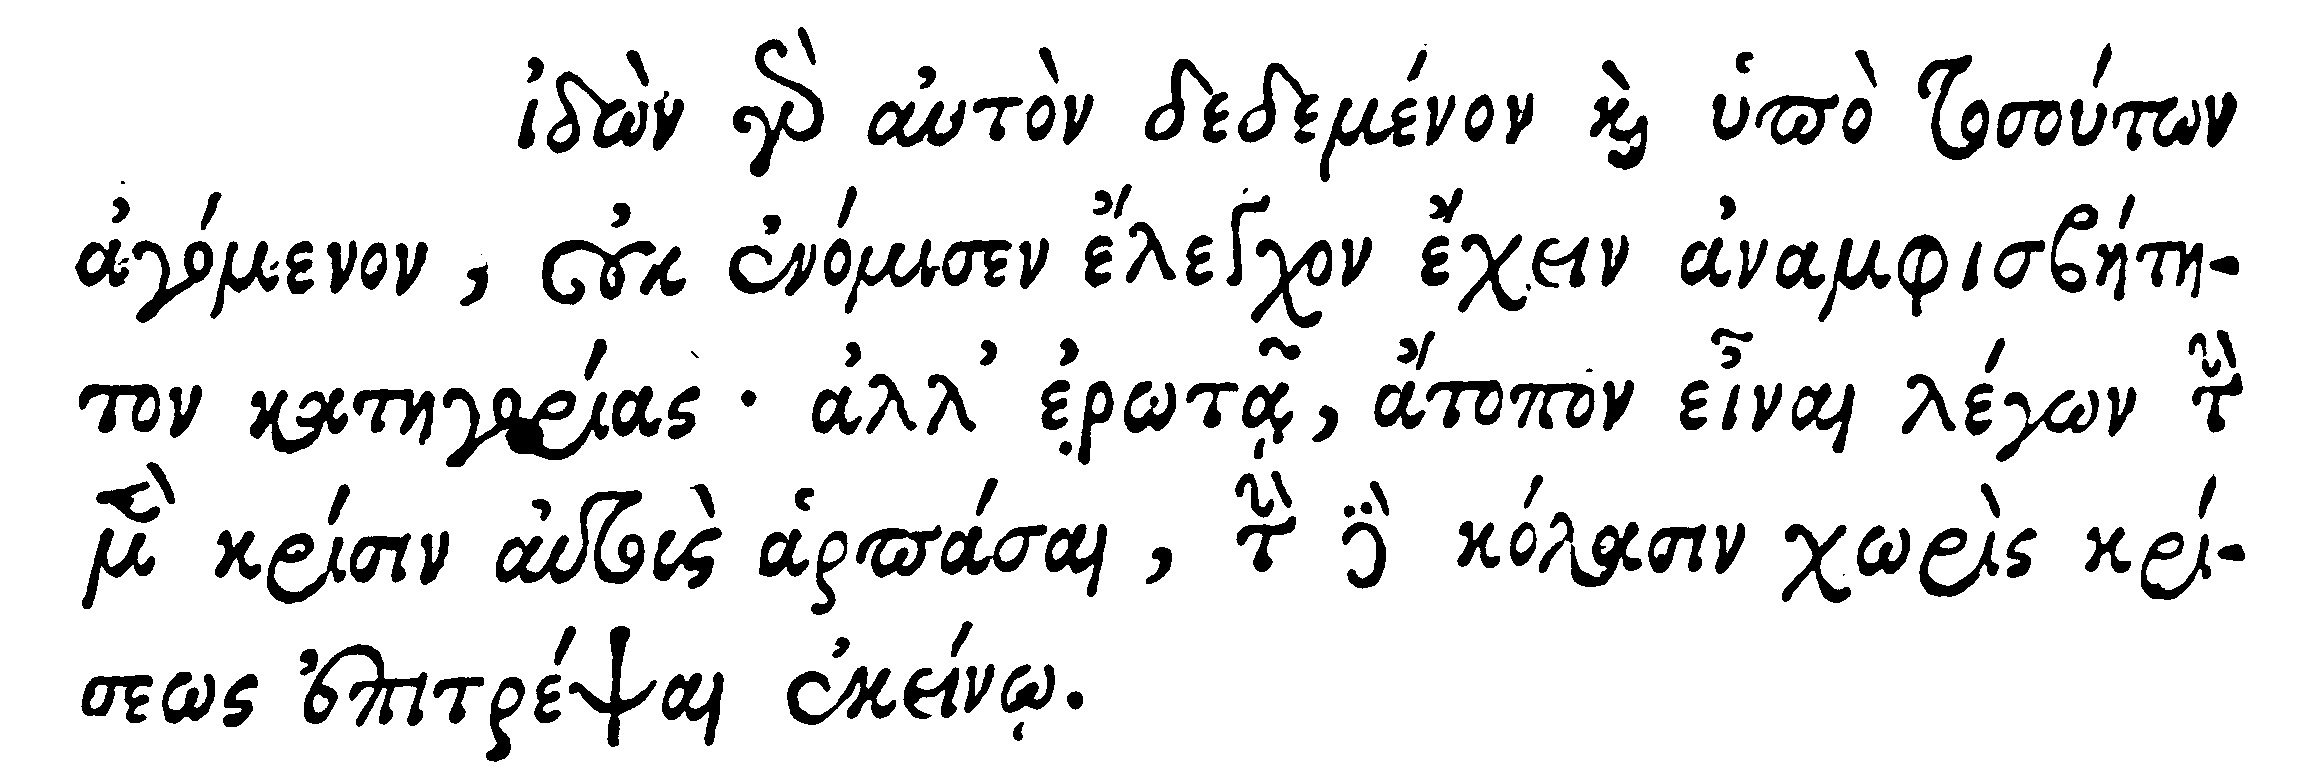 ἰδὼν γὰρ αὐτὸν δεδεμένον καὶ ὑπὸ τοσούτων
ἀγόμενον, οὐκ ἐνόμισεν ἔλεγχον ἔχειν ἀναμφισβήτη-
τον κατηγορίας· ἀλλ' ἐρωτᾷ, ἄτοπον εἶναι λέγων τὴν
μὲν κρίσιν αὐτοῖς ἁρπάσαι, τὴν δὲ κόλασιν χωρὶς κρί-
σεως ἐπιτρέψαι ἐκείνῳ.